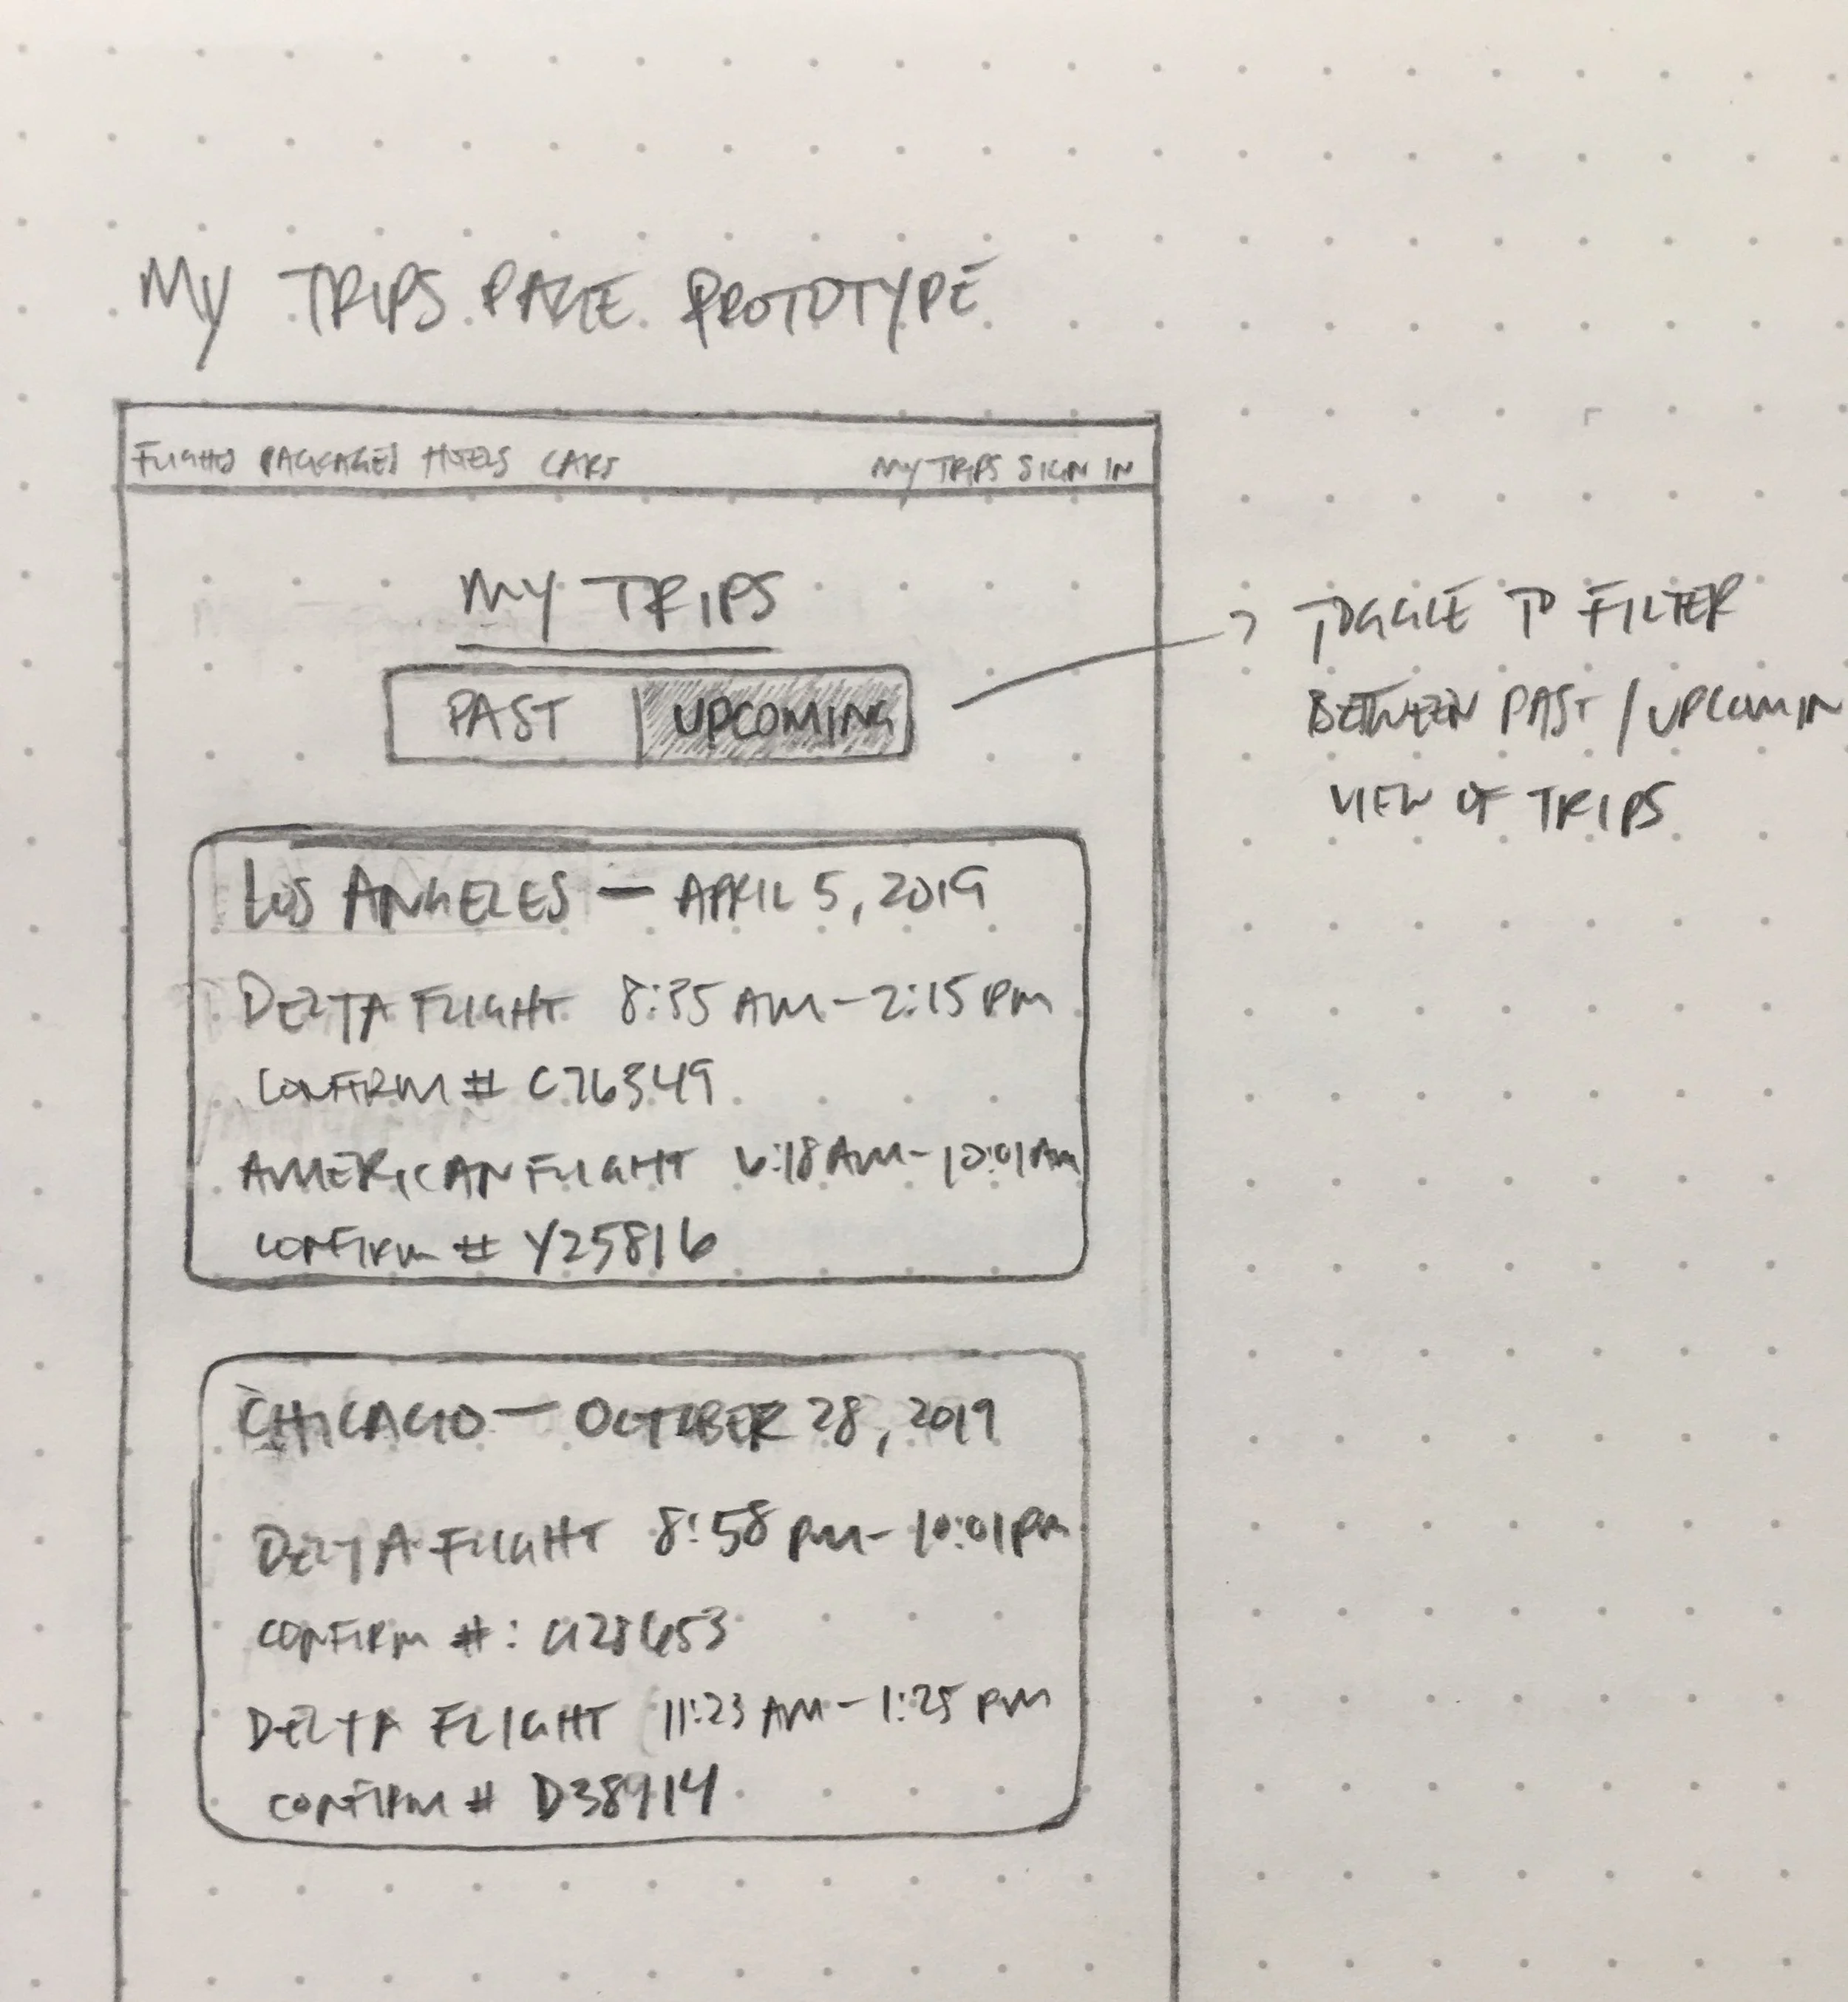 MY TRIPS PAGE PROTOTYPE
FLIGHTS PACKAGES HOTELS CARS MY TRIPS SIGN IN
MY TRIPS
PAST UPCOMING
TOGGLE TO FILTER
BETWEEN PAST / UPCOMIN
VIEW OF TRIPS
LOS ANGELES — APRIL 5, 2019
DELTA FLIGHT 8:35 AM - 2:15 PM
CONFIRM # C76349
AMERICAN FLIGHT 6:18 AM - 10:01 AM
CONFIRM # Y25816
CHICAGO — OCTOBER 28, 2019
DELTA FLIGHT 8:58 PM - 10:01 PM
CONFIRM #:
DELTA FLIGHT 11:23 AM - 1:25 PM
CONFIRM # D38914